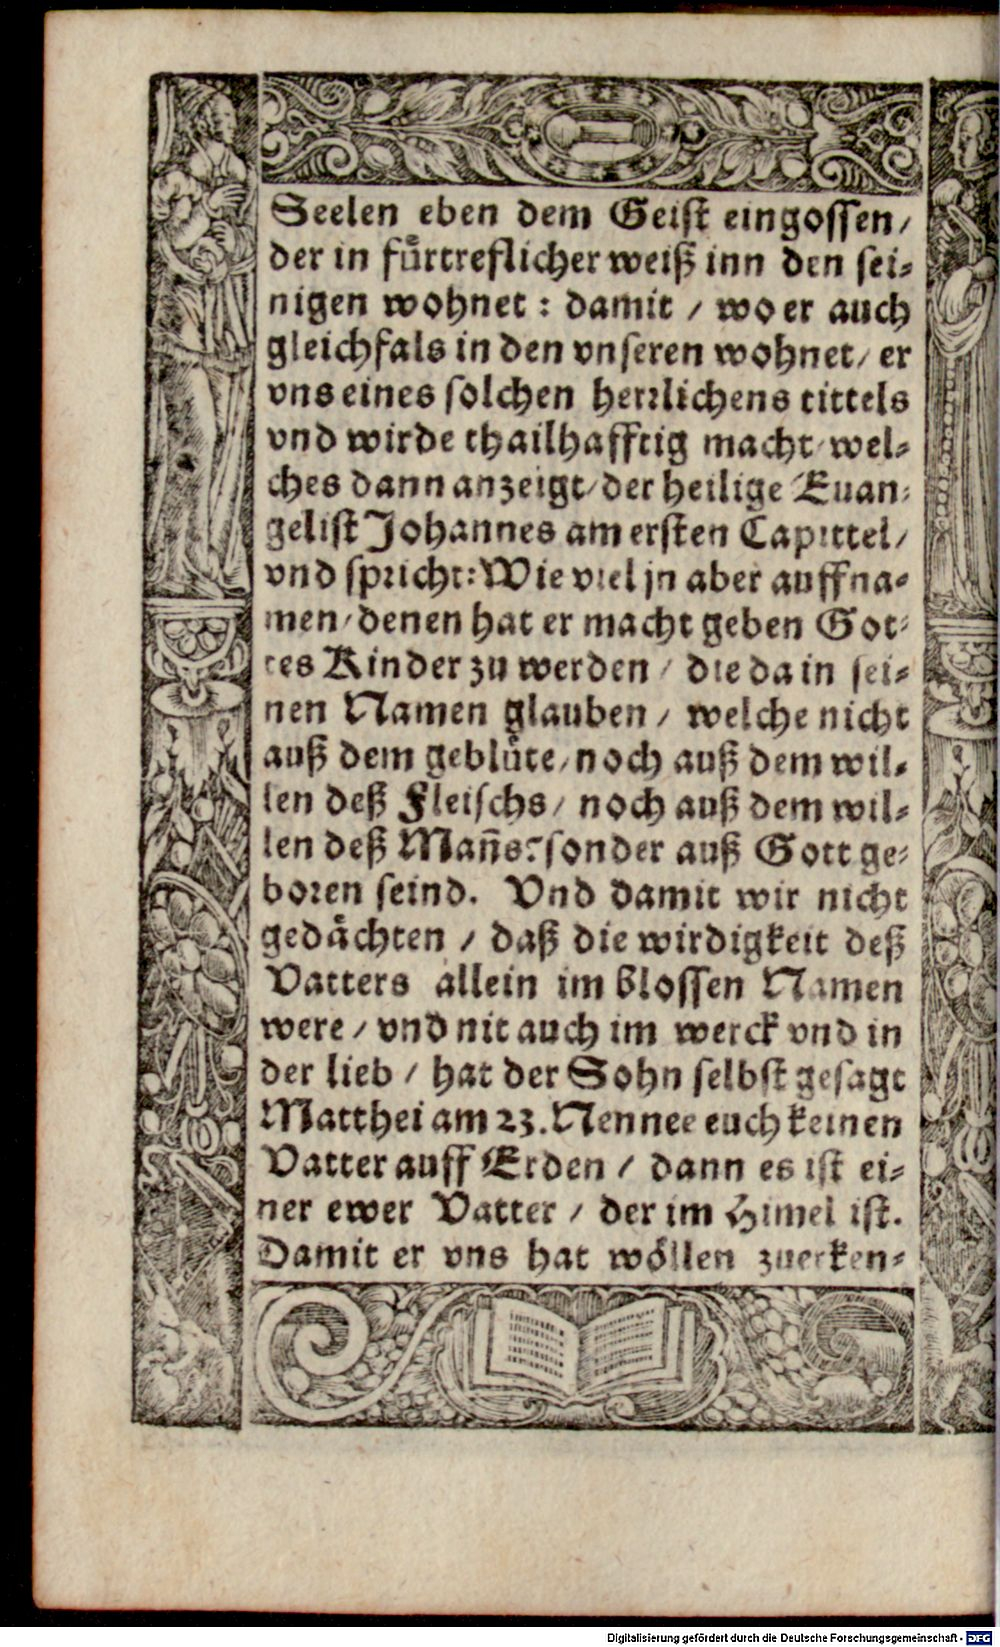 Seelen eben dem Geist eingossen/
der in fürtreflicher weiß inn den sei-
nigen wohnet : damit / wo er auch
gleichfals in den vnseren wohnet/ er
vns eines solchen herrlichens tittels
vnd wirde thailhafftig macht/ wel-
ches dann anzeigt/ der heilige Euan-
gelist Johannes am ersten Capittel/
vnd spricht: Wie viel jn aber auffna-
men/ denen hat er macht geben Got-
tes Kinder zu werden / die da in sei-
nen Namen glauben / welche nicht
auß dem geblüte/ noch auß dem wil-
len deß Fleischs/ noch auß dem wil-
len deß Mañs: sonder auß Gott ge-
boren seind. Vnd damit wir nicht
gedächten / daß die wirdigkeit deß
Vatters allein im blossen Namen
were / vnd nit auch im werck vnd in
der lieb / hat der Sohn selbst gesagt
Matthei am 23. Nennee euch keinen
Vatter auff Erden / dann es ist ei-
ner ewer Vatter / der im Himel ist.
Damit er vns hat wöllen zuerken-
Digitalisierung gefördert durch die Deutsche Forschungsgemeinschaft - DFG